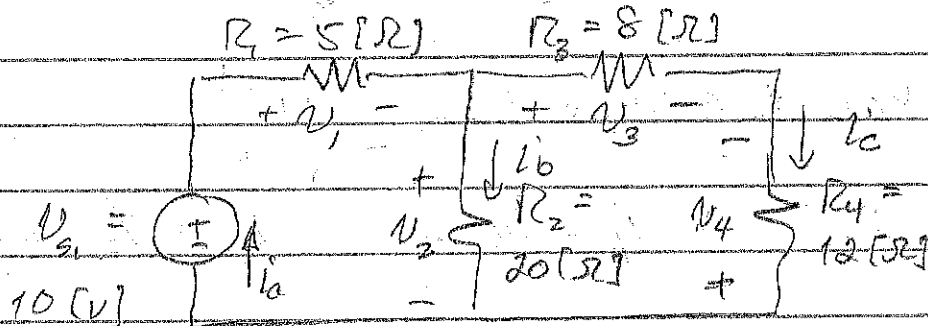 R₁ = 5 [Ω] R₃ = 8 [Ω]
+ v₁ − + v₃ −
− i_c
+ i_b
v_s₁ = ± i_a v₂ R₂ = v₄ R₄ =
20 [Ω] 12 [Ω]
10 [V] − +